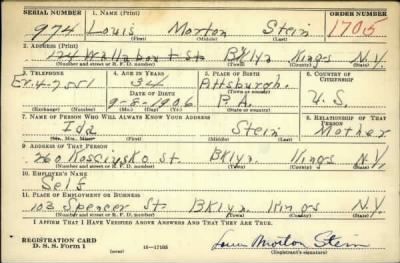 SERIAL NUMBER 1. NAME (Print) ORDER NUMBER
974 Louis Morton Stein 1705
(First) (Middle) (Last)
2. ADDRESS (Print)
174 Wallabout St. BKlyn Kings N.Y.
(Number and street or R. F. D. number) (Town) (County) (State)
3. TELEPHONE 4. AGE IN YEARS 5. PLACE OF BIRTH 6. COUNTRY OF CITIZENSHIP
34 Pittsburgh.
DATE OF BIRTH
9-8-1906 P.A. U.S.
(Exchange) (Number) (Mo.) (Day) (Yr.) (State or country)
7. NAME OF PERSON WHO WILL ALWAYS KNOW YOUR ADDRESS 8. RELATIONSHIP OF THAT PERSON
Ida Stein Mother
(Mr., Mrs., Miss) (First) (Middle) (Last)
9. ADDRESS OF THAT PERSON
260 Kosciusko St. BKlyn. Kings N.Y.
(Number and street or R. F. D. number) (Town) (County) (State)
10. EMPLOYER'S NAME
Self
11. PLACE OF EMPLOYMENT OR BUSINESS
103 Spencer St. BKlyn Kings N.Y.
(Number and street or R. F. D. number) (Town) (County) (State)
I AFFIRM THAT I HAVE VERIFIED ABOVE ANSWERS AND THAT THEY ARE TRUE.
REGISTRATION CARD
D. S. S. Form 1 (over) 16—17105 Louis Morton Stein
(Registrant's signature)